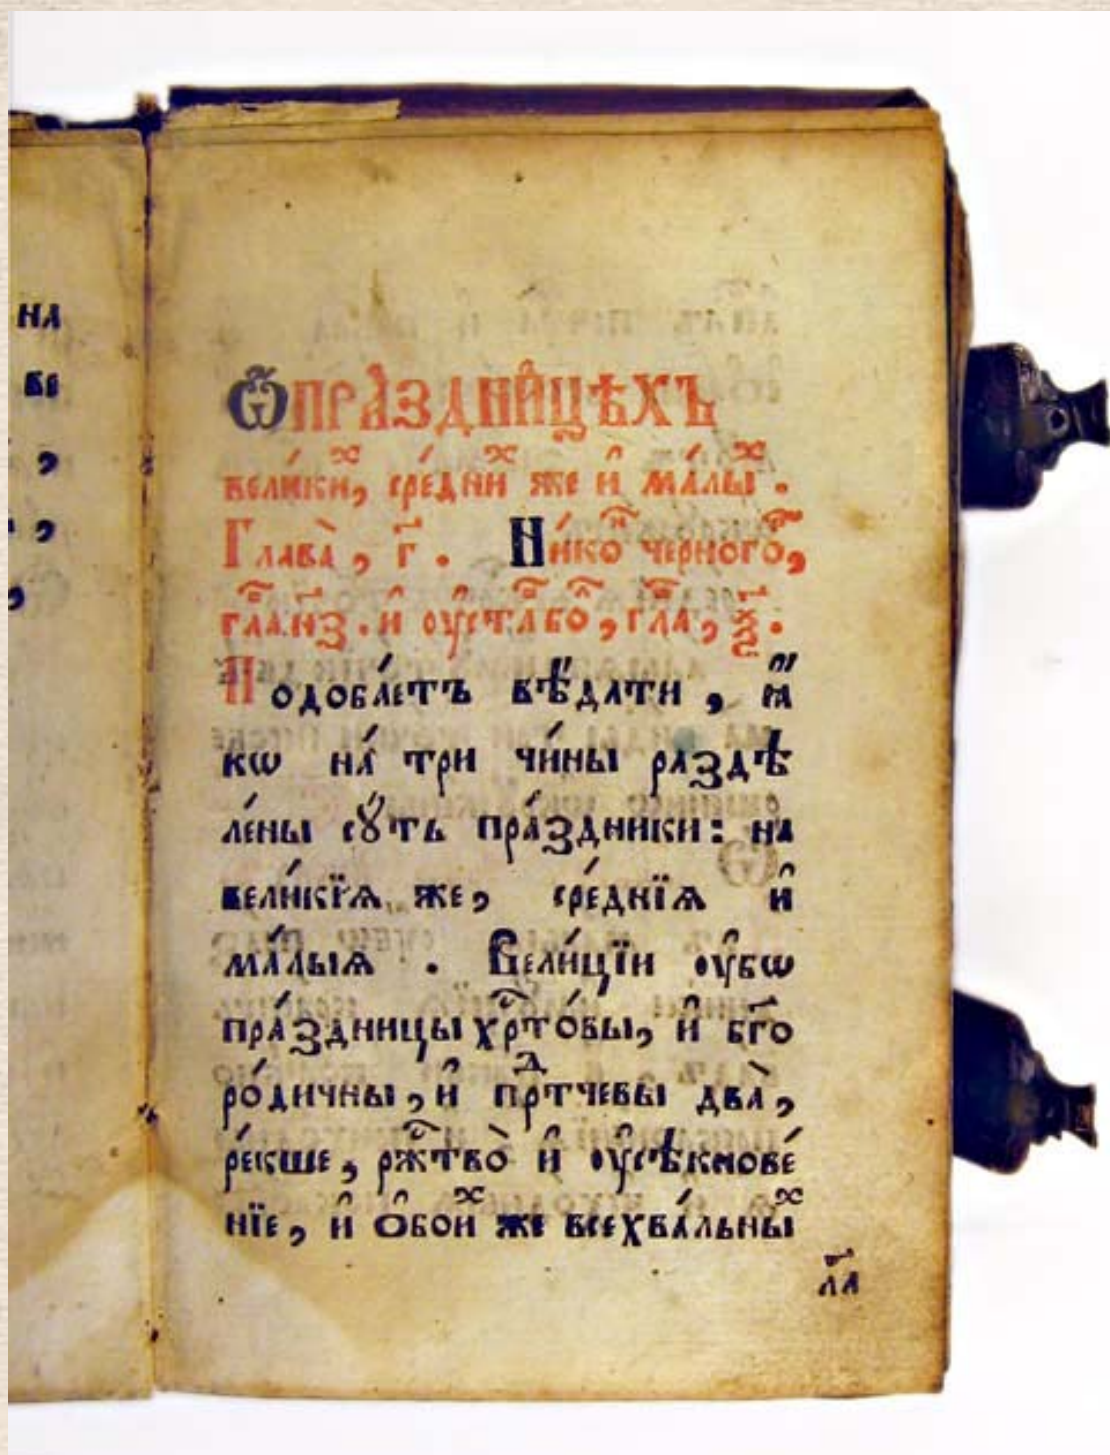 на
бе
Ѽпра́здни̑цѣхъ
вели́киⷯ, сре́дниⷯ же и҆ ма́лыⷯ.
Глава̀, г҃. Ни́ко че́рного,
и҆ ᲂу҆ста́
Подоба́етъ вѣ́дати, ꙗ҆́
кѡ на́ три чи́ны раздѣ
ле́ны сꙋ́ть пра́здники: на
вели́кїѧ же, сре́днїѧ и҆
ма́лыѧ. Вели́цїи ᲂу҆бѡ
пра́здницы хрⷭ҇то́вы, и҆ бг҃о
ро́дичны, и҆ прⷣтчевы два̀,
ре́кше, рж҇тво̀ и҆ ᲂу҆сѣкнове́
нїе, и҆ ѻ҆бои́ⷯ же всехва́льныⷯ
л҃а